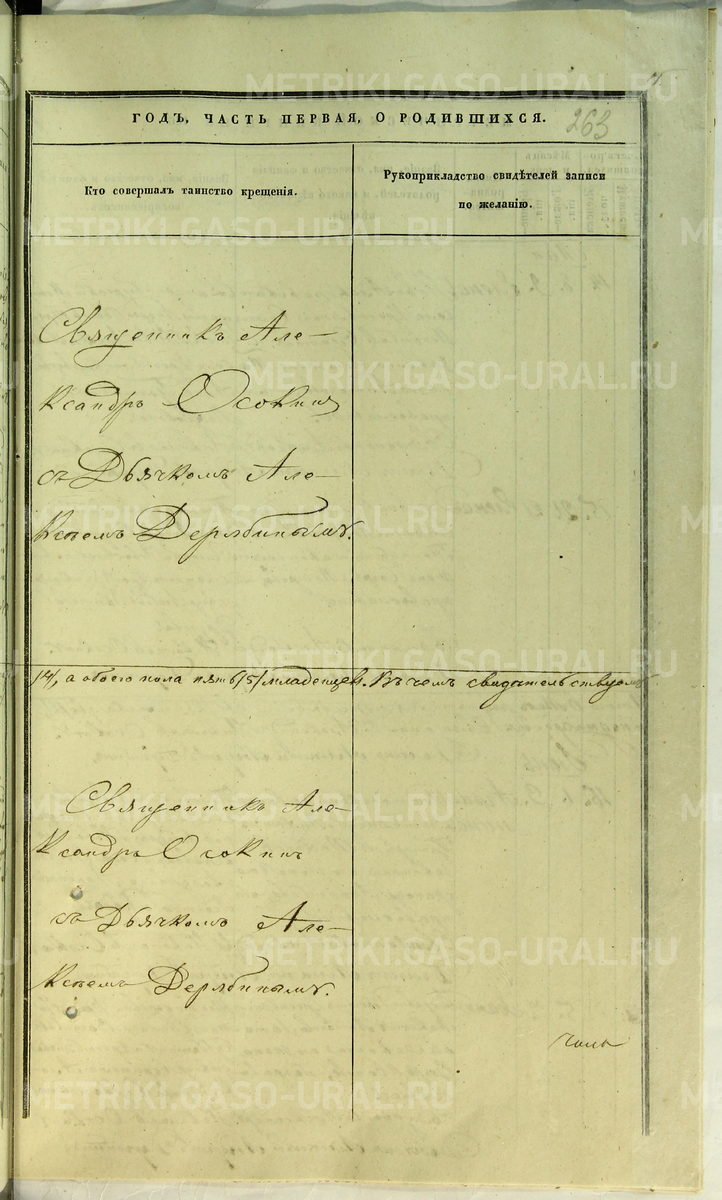 263
ГОДЪ, ЧАСТЬ ПЕРВАЯ, О РОДИВШИХСЯ.
Кто совершалъ таинство крещенія.
Рукоприкладство свидѣтелей записи
по желанію.
Священникъ Але-
ксандръ Осокинъ
съ Дьячкомъ Але-
ксѣемъ Дерябинымъ.
/4/, а обоего пола пять /5/ младенцев. Въ чемъ свидѣтельствуемъ
Священникъ Але-
ксандръ Осокинъ
съ Дьячкомъ Але-
ксѣемъ Дерябинымъ.
METRIKI.GASO-URAL.RU